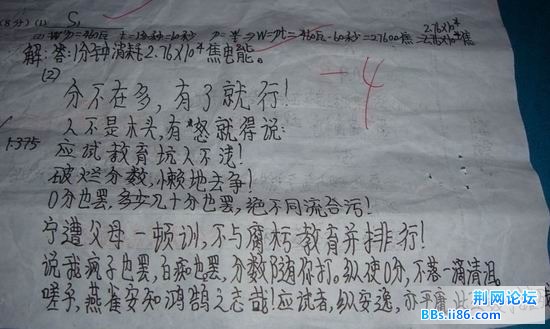 (8分)(1) S₁
(2) W=? P=460瓦 t=1分钟=60秒 P=W/t⇒W=Pt=460瓦·60秒=27600焦=2.76×10⁴焦
2.76×10⁴
解:答:1分钟消耗2.76×10⁴焦电能。
(2)
-4
分不在多,有了就行!
人不是木头,有怒就得说:
1375
应试教育坑人不浅!
破烂分数,懒地去争!
0分也罢,多少九十分也罢,绝不同流合污!
宁遭父母一顿训,不与腐朽教育并排行!
说我疯子也罢,白痴也罢,分数随你打。纵使0分,不落一滴清泪。
嗟乎,燕雀安知鸿鹄之志哉!应试者,纵安逸,亦平庸
荆网论坛
BBs.ii86.com